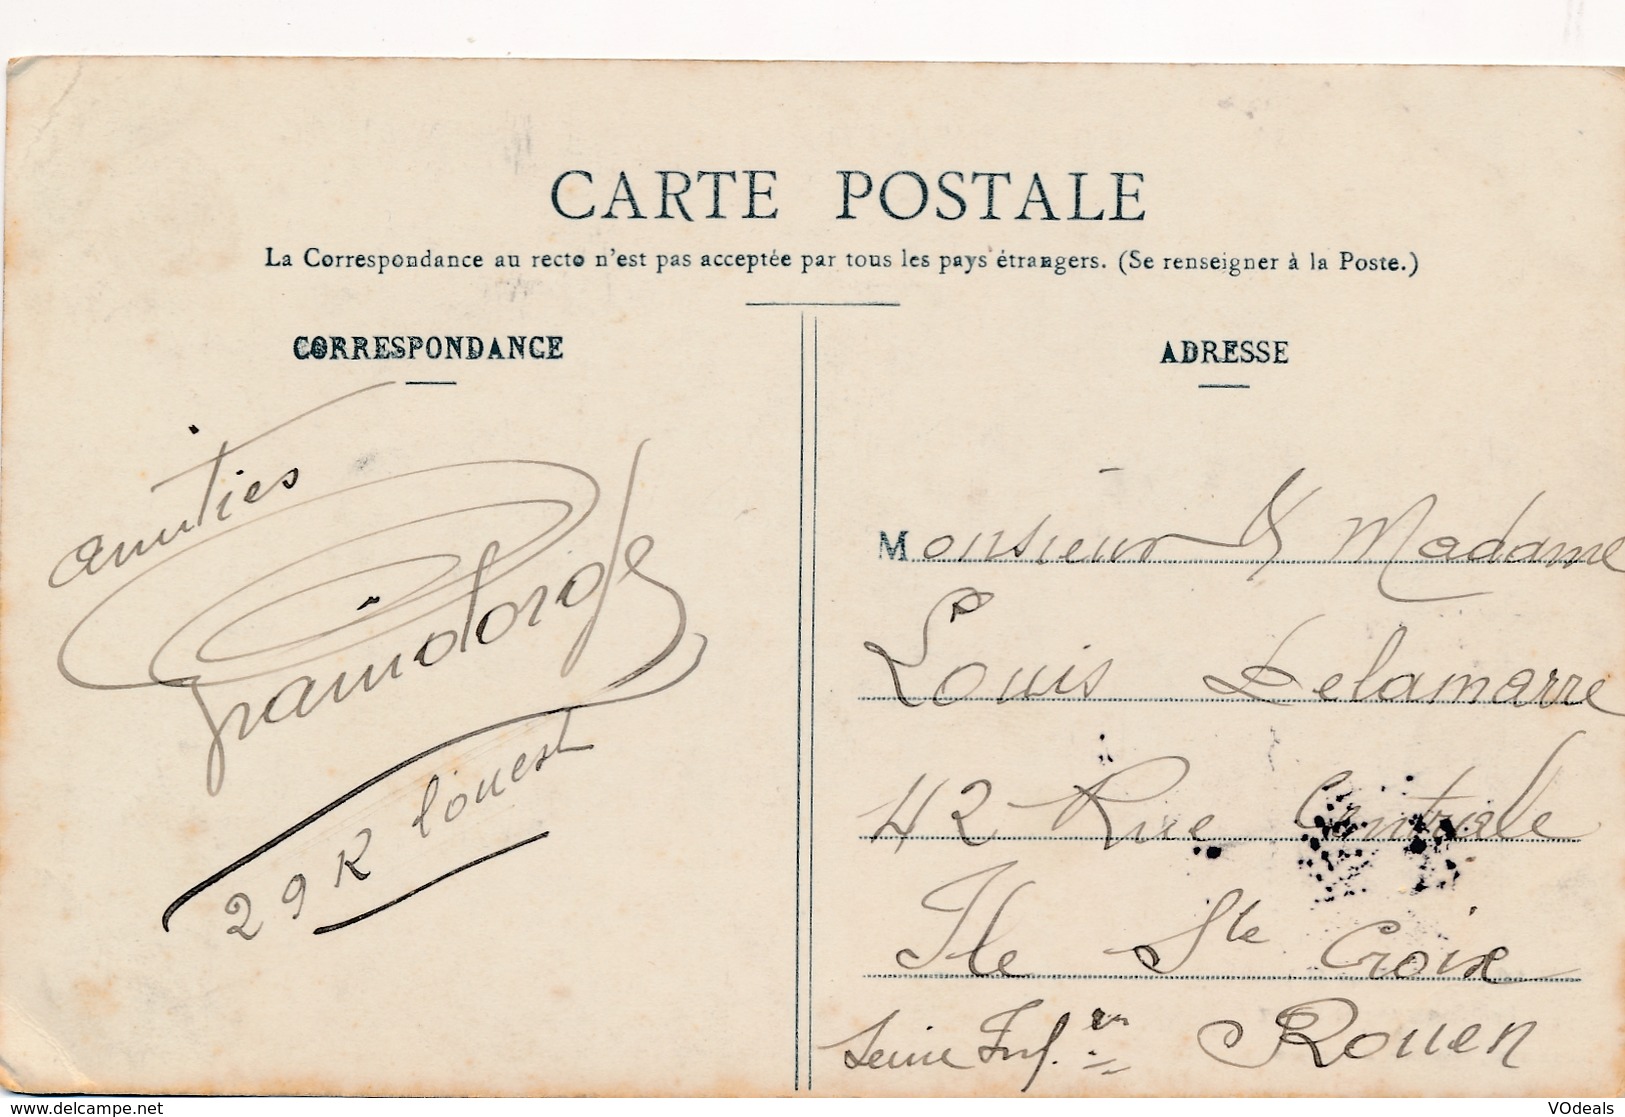 CARTE POSTALE
La Correspondance au recto n'est pas acceptée par tous les pays étrangers. (Se renseigner à la Poste.)
CORRESPONDANCE
amities
29 K l'ouest
ADRESSE
Monsieur & Madame
Louis Delamarre
42 Rue Centrale
Ile Ste Croix
Seine Infre Rouen
delcampe.net
VOdeals